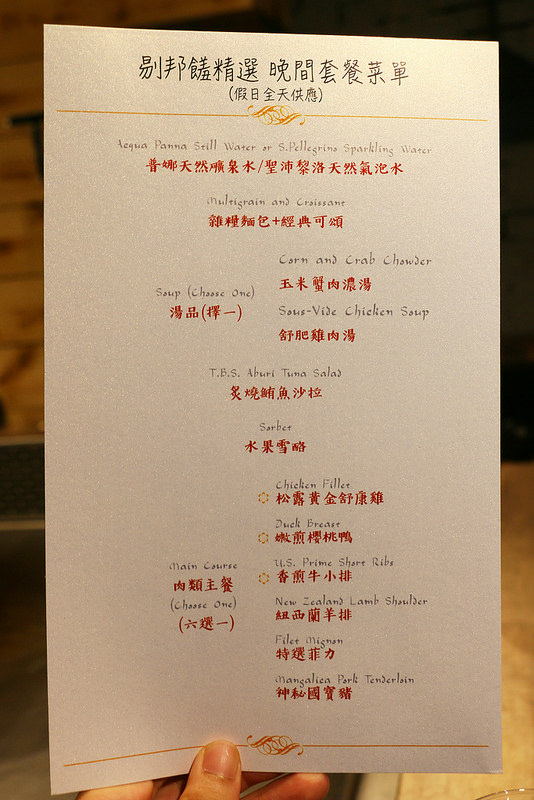 剔邦饈精選 晚間套餐菜單
(假日全天供應)
Acqua Panna Still Water or S.Pellegrino Sparkling Water
普娜天然礦泉水/聖沛黎洛天然氣泡水
Multigrain and Croissant
雜糧麵包+經典可頌
Soup (Choose One)
湯品(擇一)
Corn and Crab Chowder
玉米蟹肉濃湯
Sous-Vide Chicken Soup
舒肥雞肉湯
T.B.S. Aburi Tuna Salad
炙燒鮪魚沙拉
Sorbet
水果雪酪
Main Course
肉類主餐
(Choose One)
(六選一)
Chicken Fillet
松露黃金舒康雞
Duck Breast
嫩煎櫻桃鴨
U.S. Prime Short Ribs
香煎牛小排
New Zealand Lamb Shoulder
紐西蘭羊排
Filet Mignon
特選菲力
Mangalica Pork Tenderloin
神秘國寶豬